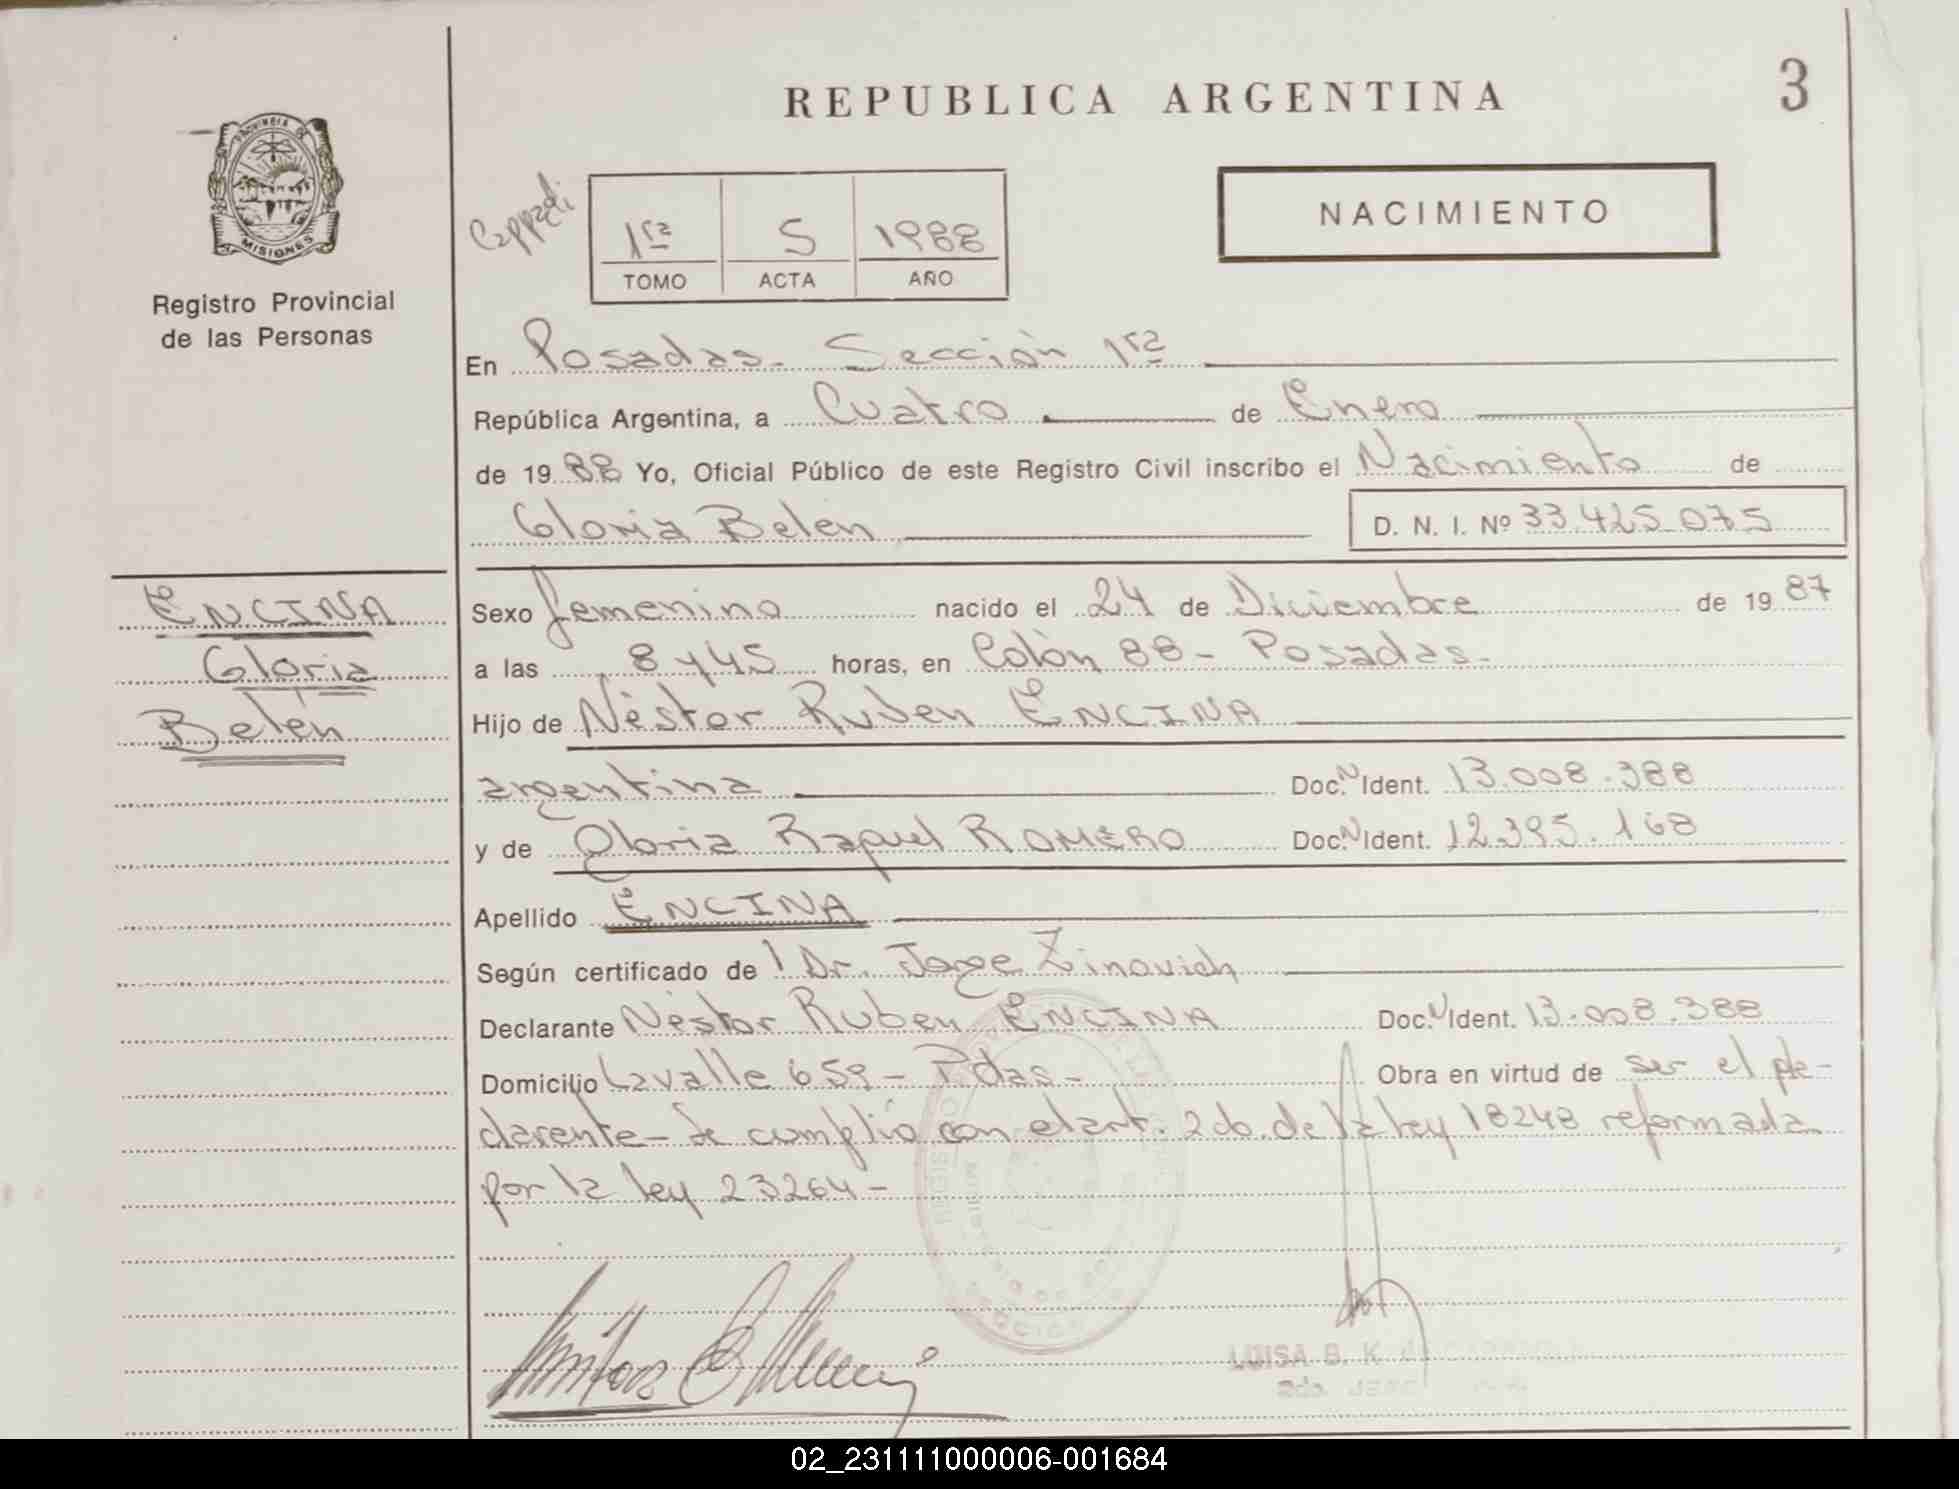 REPUBLICA ARGENTINA
3
PROVINCIA DE
MISIONES
Registro Provincial
de las Personas
1ra 5 1988
TOMO ACTA AÑO
NACIMIENTO
En Posadas - Sección 1ra
República Argentina, a Cuatro de Enero
de 19 88 Yo, Oficial Público de este Registro Civil inscribo el Nacimiento de
Gloria Belén
D. N. I. Nº 33.425.075
ENCINA
Gloria
Belén
Sexo femenino nacido el 24 de Diciembre de 19 87
a las 8 y 45 horas, en Colón 88 - Posadas -
Hijo de Néstor Ruben ENCINA
argentina Doc. N Ident. 13.008.388
y de Gloria Raquel ROMERO Doc. N Ident. 12.395.168
Apellido ENCINA
Según certificado de l Dr. Jorge Zinovich
Declarante Néstor Ruben ENCINA Doc. N Ident. 13.008.388
Domicilio Lavalle 659 - Pdas - Obra en virtud de ser el de-
clarente - Se cumplió con el art. 2do. de la ley 18248 reformada
por la ley 23264 -
LUISA B. K.
2do. JEFE
02_231111000006-001684